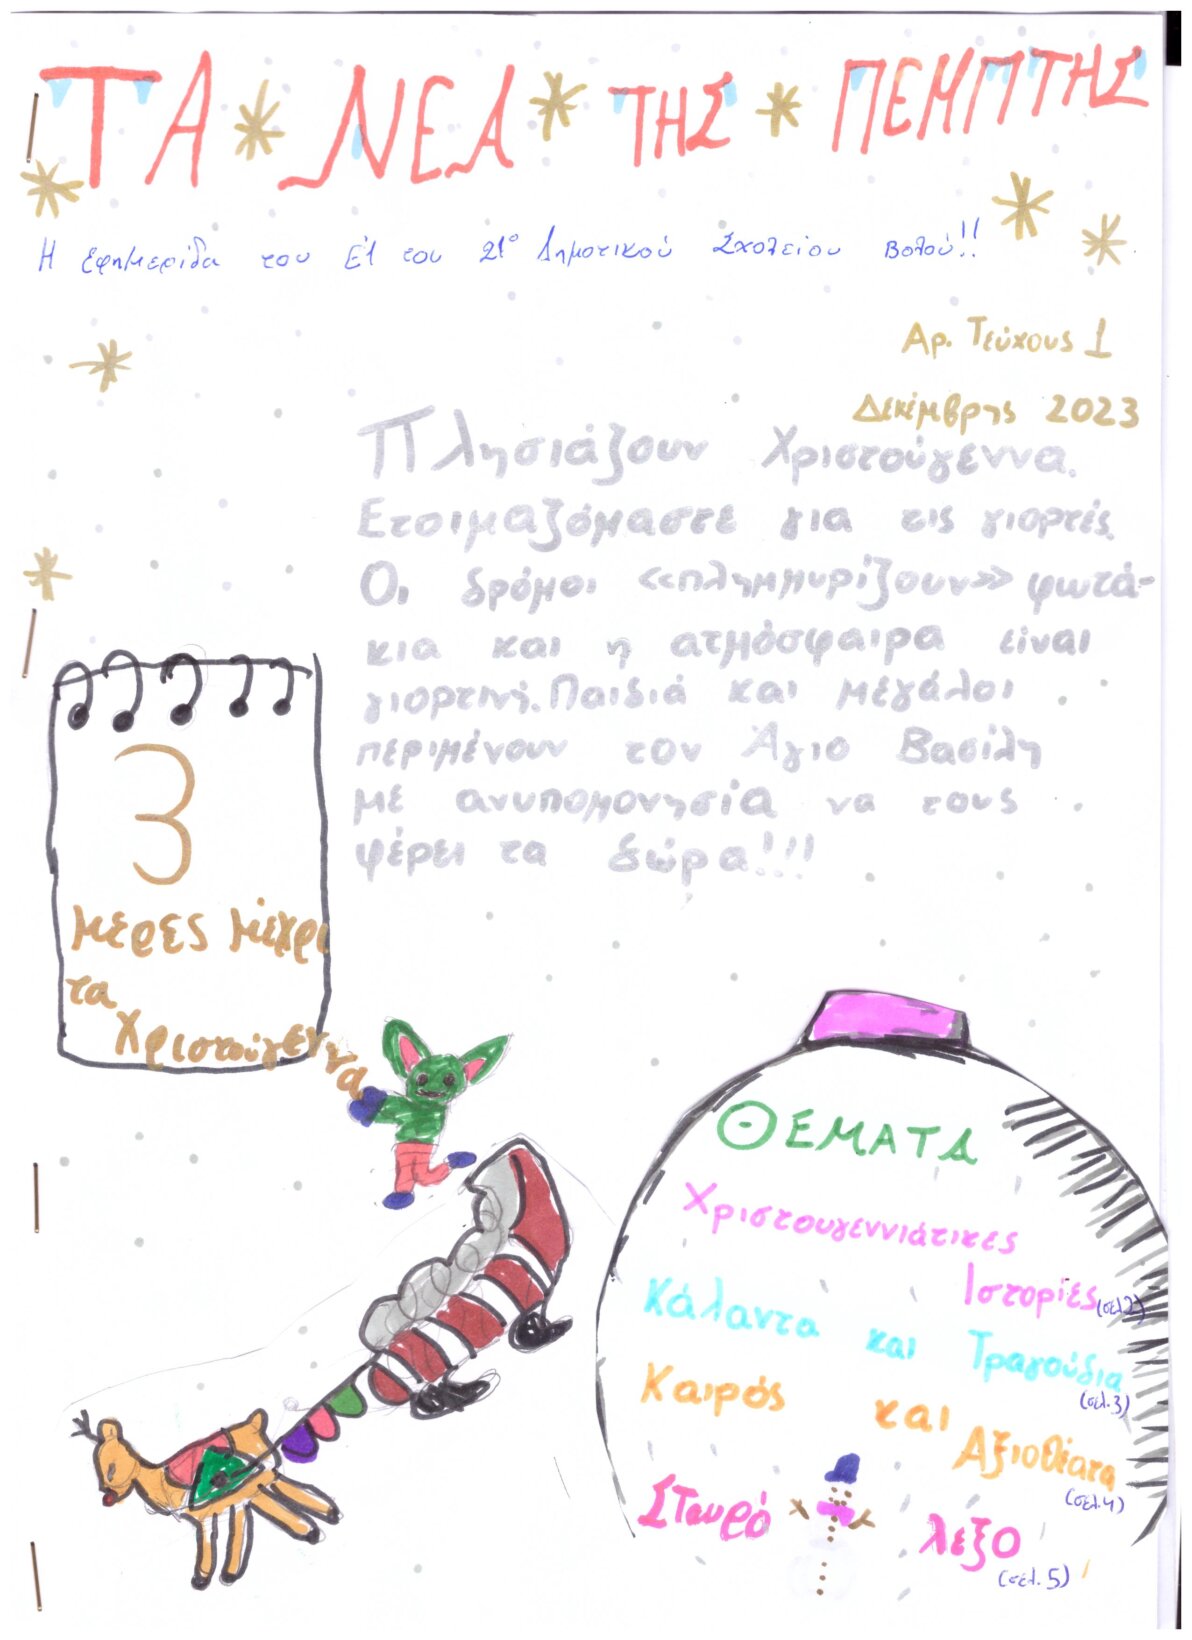 ΤΑ ΝΕΑ ΤΗΣ ΠΕΜΠΤΗΣ
Η εφημερίδα του Ε1 του 21ο Δημοτικού Σχολείου Βολού!!
Αρ. Τεύχους 1
Δεκέμβρης 2023
Πλησιάζουν Χριστούγεννα.
Ετοιμαζόμαστε για τις γιορτές.
Οι δρόμοι «πλημμυρίζουν» φωτά-
κια και η ατμόσφαιρα είναι
γιορτινή. Παιδιά και μεγάλοι
περιμένουν τον Άγιο Βασίλη
με ανυπομονησία να τους
φέρει τα δώρα!!!
3
μέρες μέχρι
τα
Χριστούγεννα
ΘΕΜΑΤΑ
Χριστουγεννιάτικες
Ιστορίες (σελ2)
Κάλαντα και Τραγούδια
(σελ.3)
Καιρός και Αξιοθέατα
(σελ.4)
Σταυρό λεξο
(σελ.5)